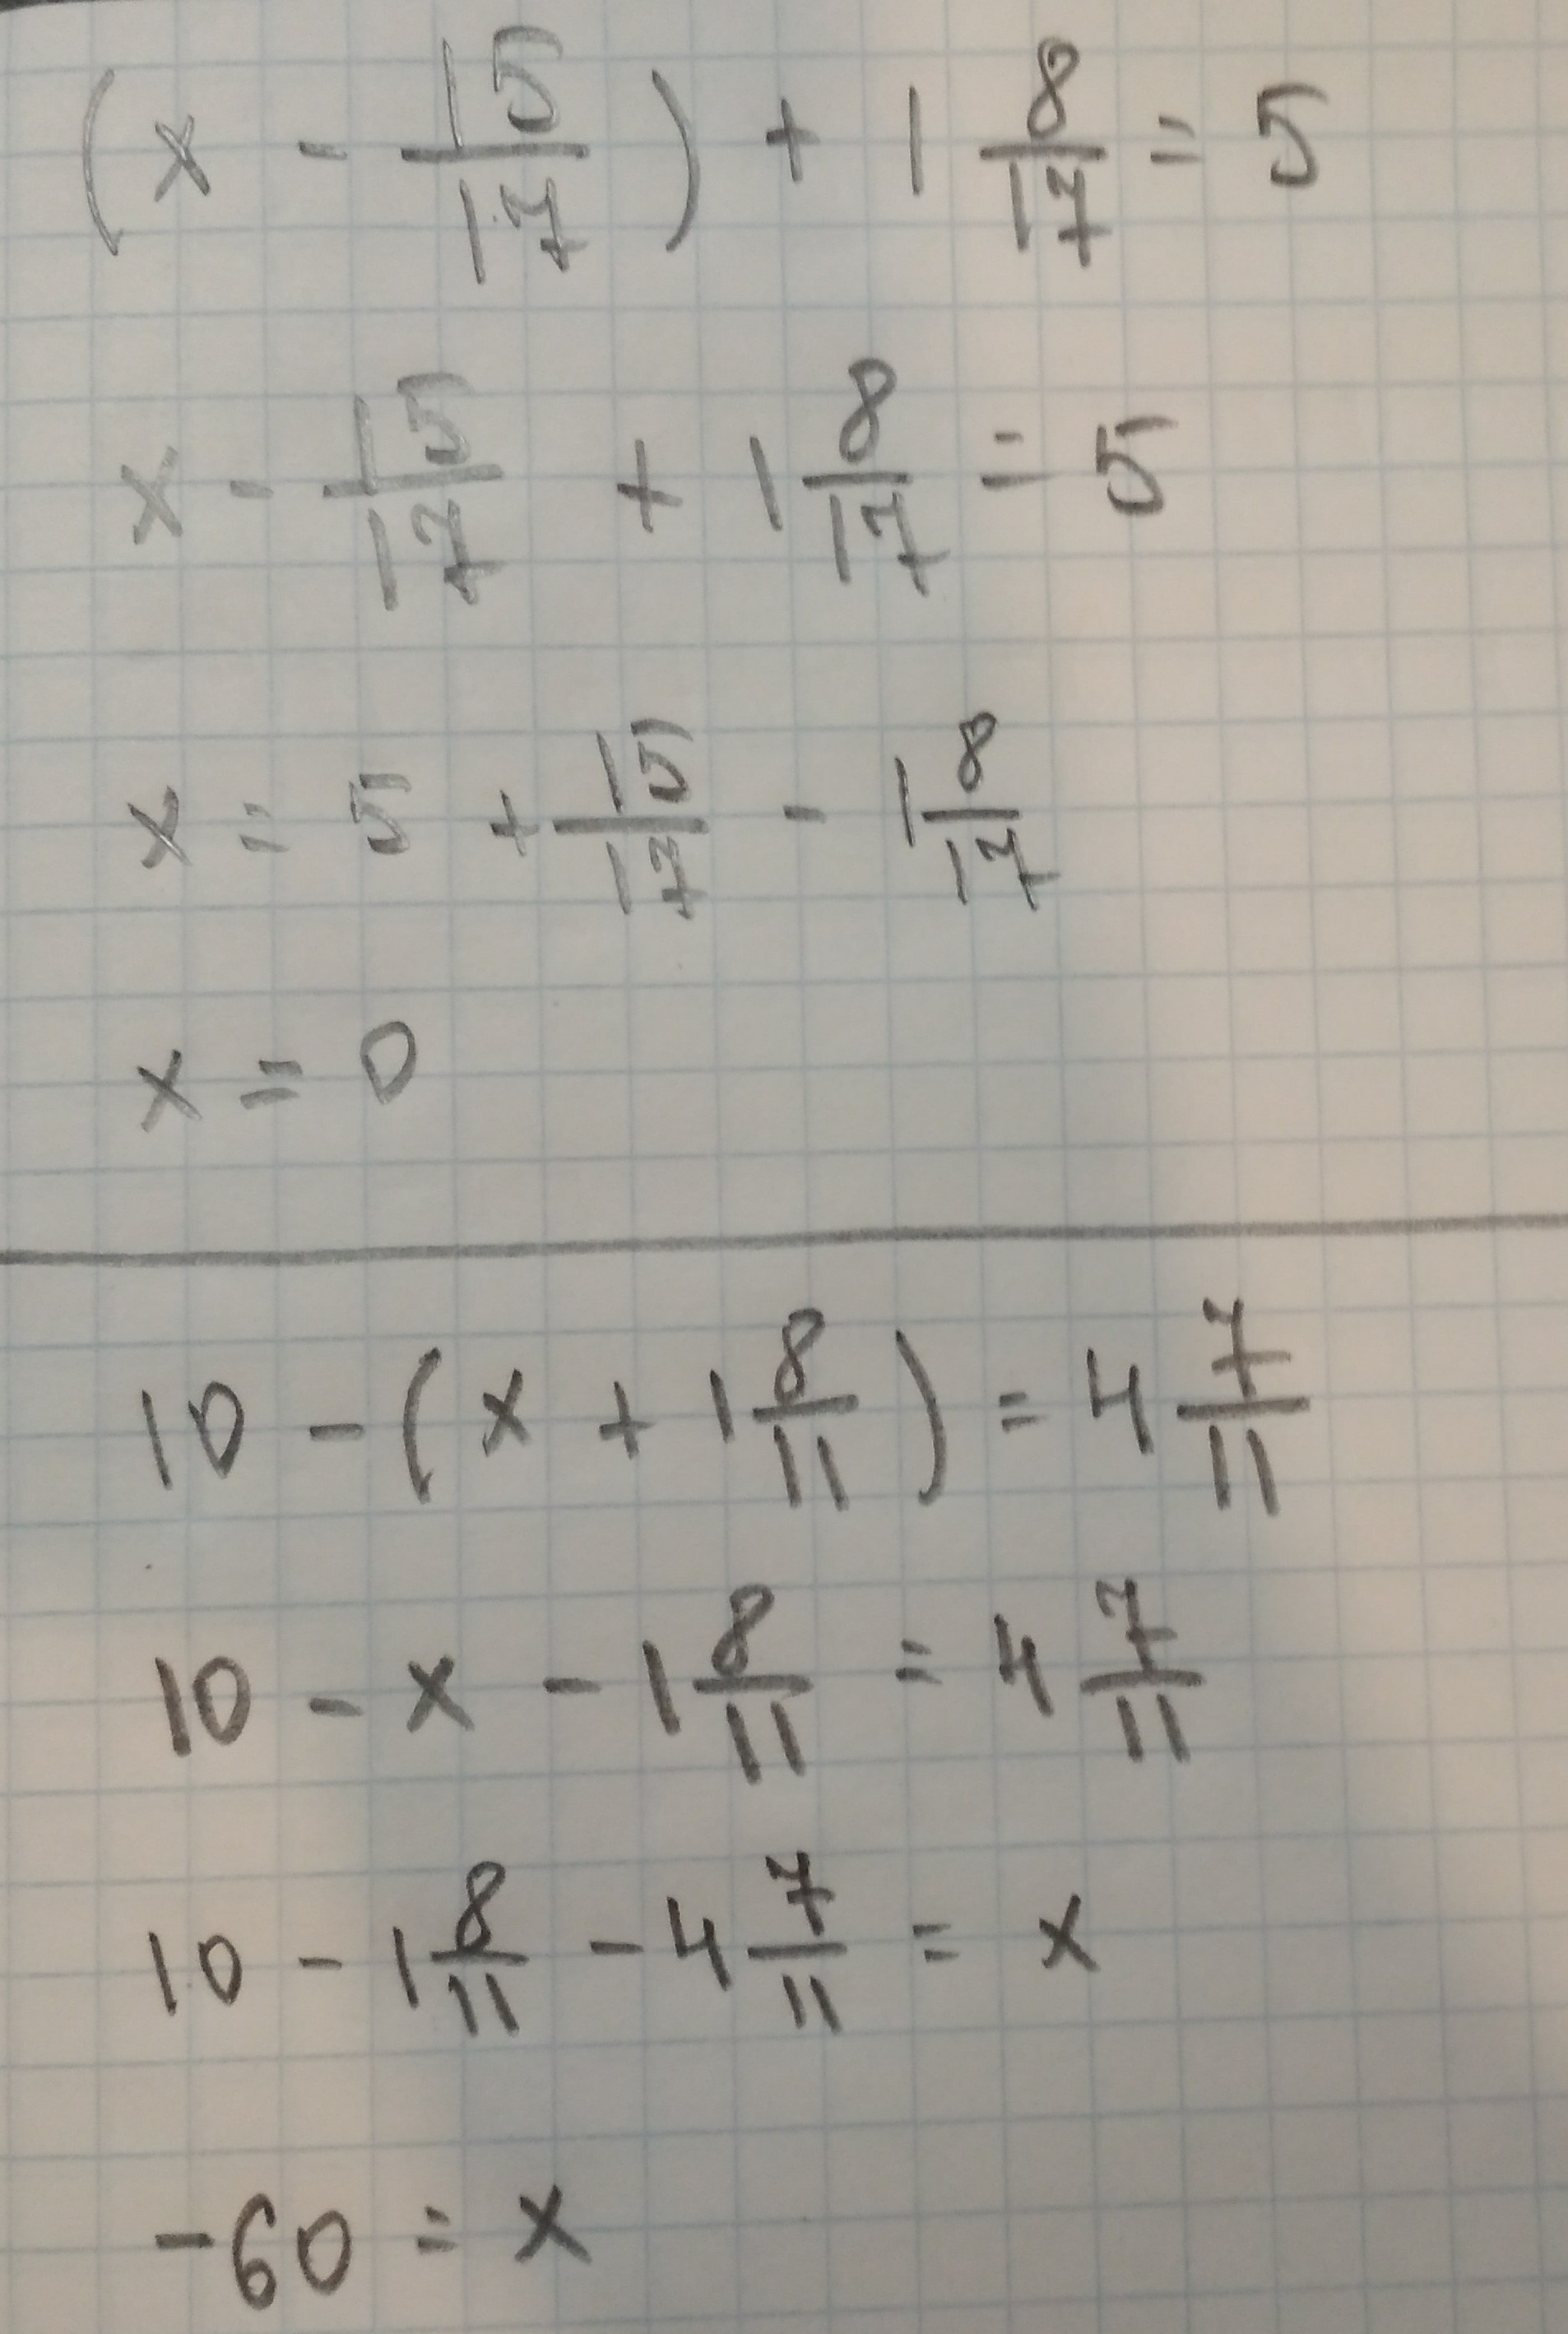 (x - 15/17) + 1 8/17 = 5
x - 15/17 + 1 8/17 = 5
x = 5 + 15/17 - 1 8/17
x = 0
10 - (x + 1 8/11) = 4 7/11
10 - x - 1 8/11 = 4 7/11
10 - 1 8/11 - 4 7/11 = x
-60 = x